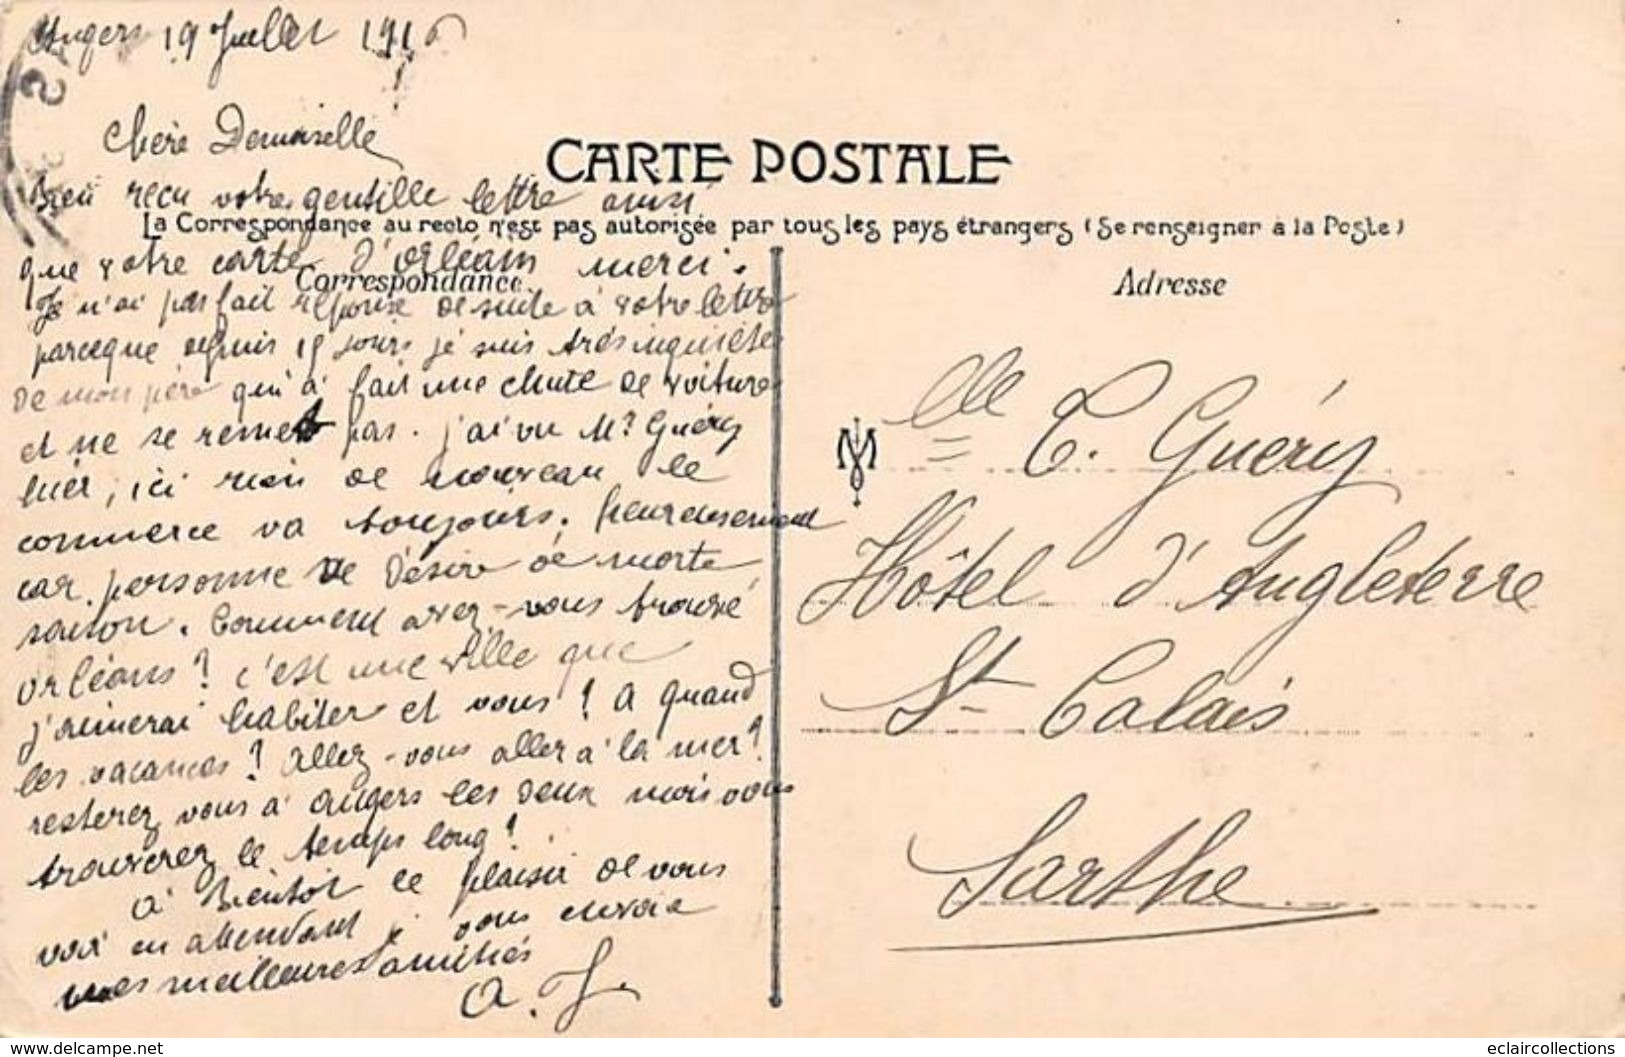 Angers 19 Juillet 191
Chère Demoiselle
CARTE POSTALE
Bien reçu votre gentille lettre ainsi
La Correspondance au recto n'est pas autorisée par tous les pays étrangers (Se renseigner à la Poste)
que votre carte d'Orléans merci.
Correspondance.
Je n'ai pas fait réponse de suite à votre lettre
parceque depuis 15 jours je suis très inquiète
de mon père qui à fait une chute de voiture
et ne se remet pas. j'ai vu Mr Guéry
hier, ici rien de nouveau le
commerce va toujours. heureusement
car personne ne désire de morte
saison. Comment avez-vous trouvé
Orléans? c'est une ville que
j'aimerai habiter et vous? A quand
les vacances? Allez-vous aller à la mer?
resterez vous à Angers les deux mois vous
trouverez le temps long!
à Bientôt le plaisir de vous
voir en attendant je vous envoie
mes meilleures amitiés
A. J.
Adresse
Mlle C. Guéry
Hôtel d'Angleterre
St Calais
Sarthe
www.delcampe.net
eclaircollections